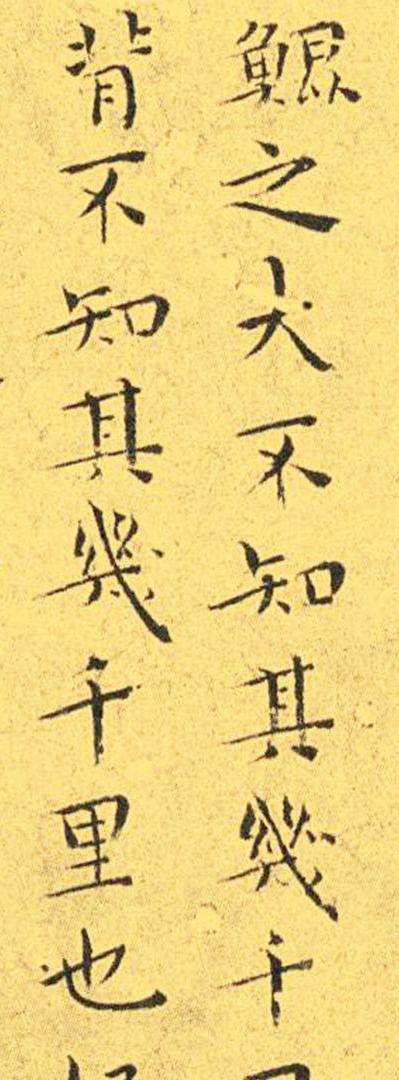 鯤之大不知其幾千
背不知其幾千里也